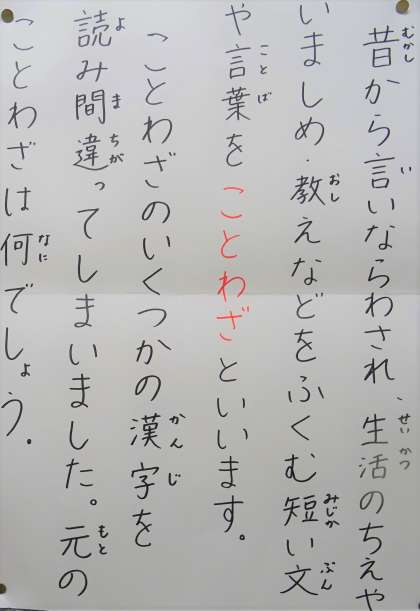 昔から言いならわされ、生活のちえや
いましめ・教えなどをふくむ短い文
や言葉をことわざといいます。
ことわざのいくつかの漢字を
読み間違ってしまいました。元の
ことわざは何でしょう。